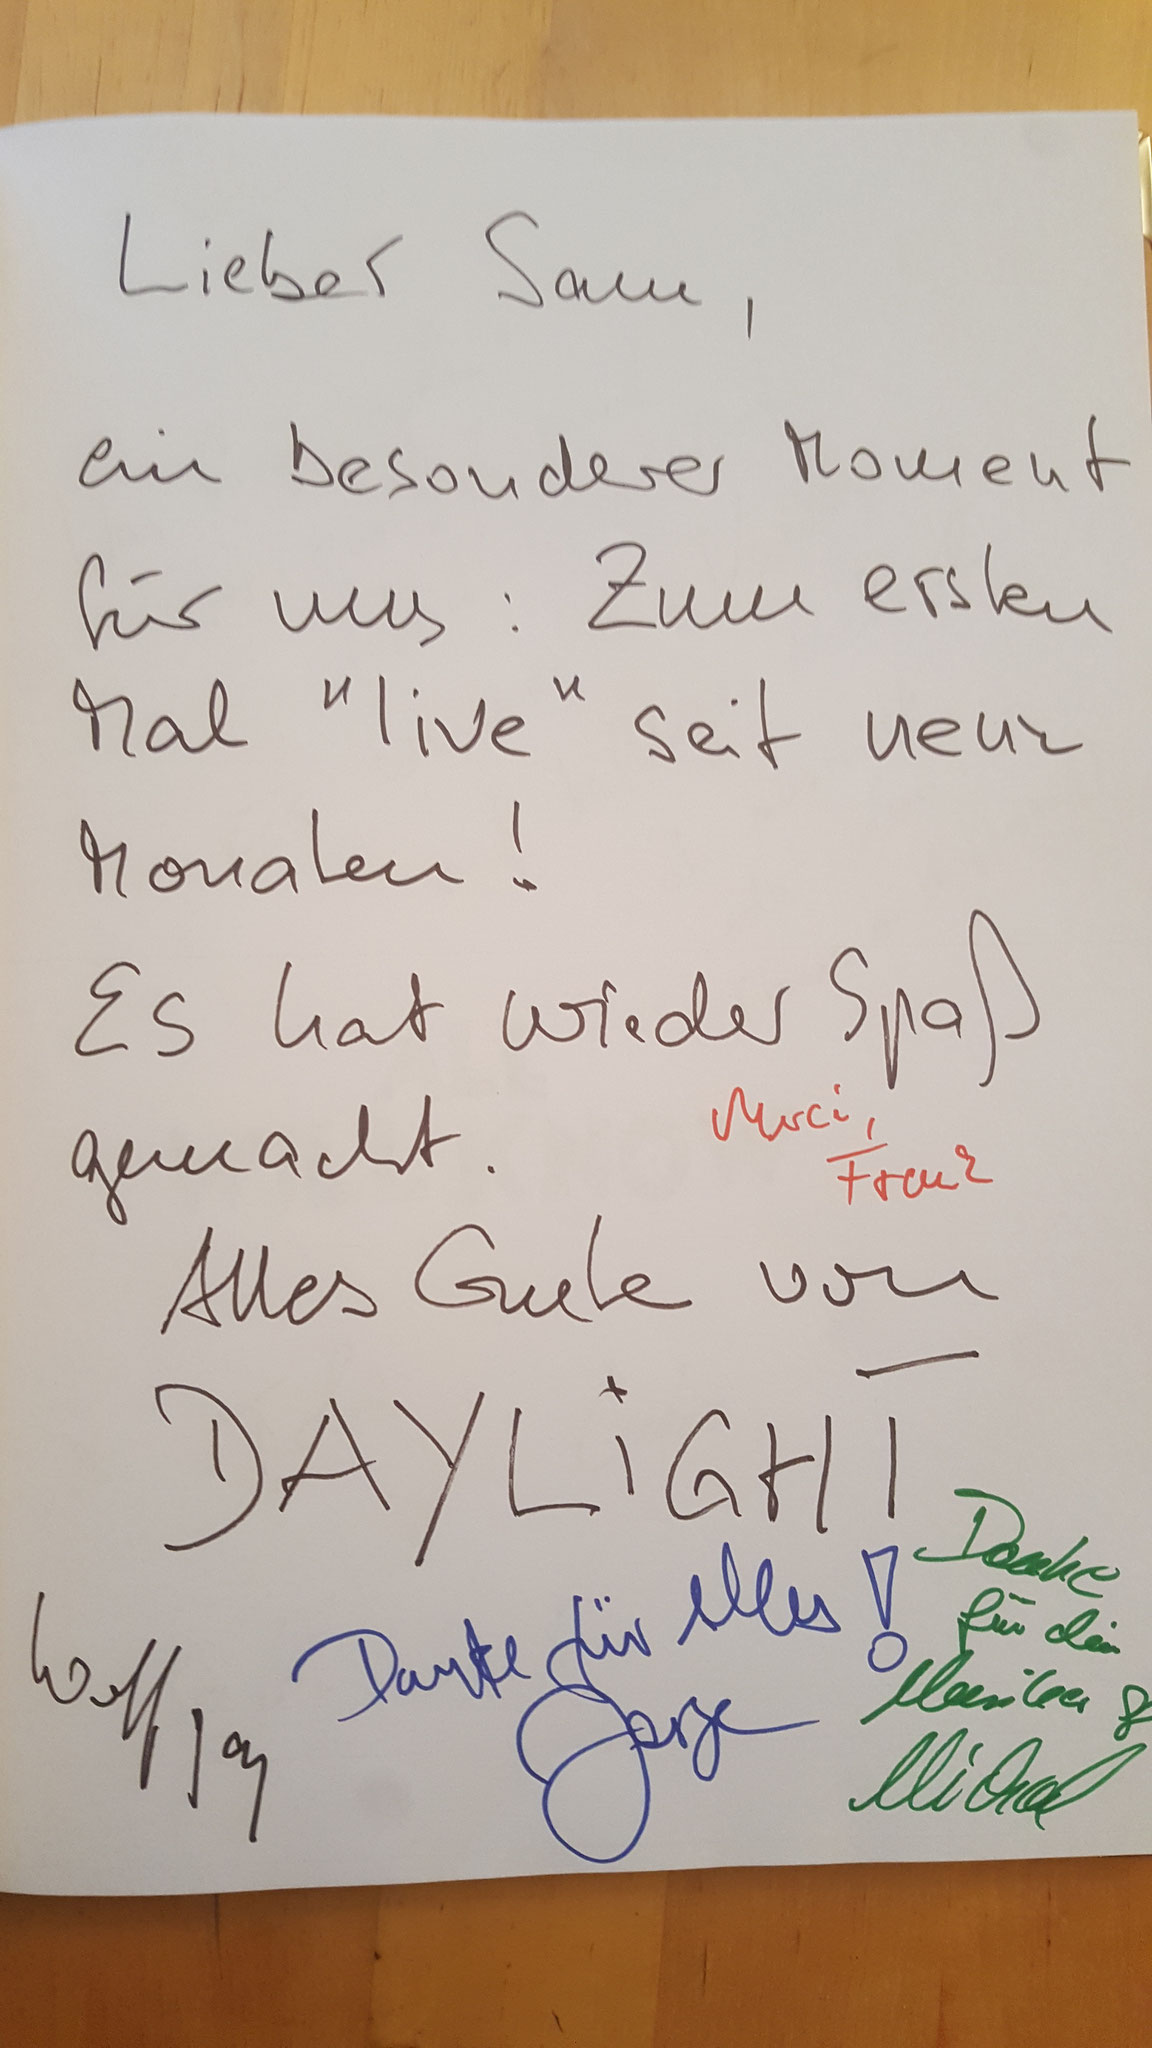 Lieber Sam,
ein besonderer Moment
für uns: Zum ersten
Mal "live" seit neun
Monaten!
Es hat wieder Spaß
gemacht.
Merci,
Franz
Alles Gute von
DAYLiGHT
Wolfgang
Danke für Alles!
Danke
für die
Michael